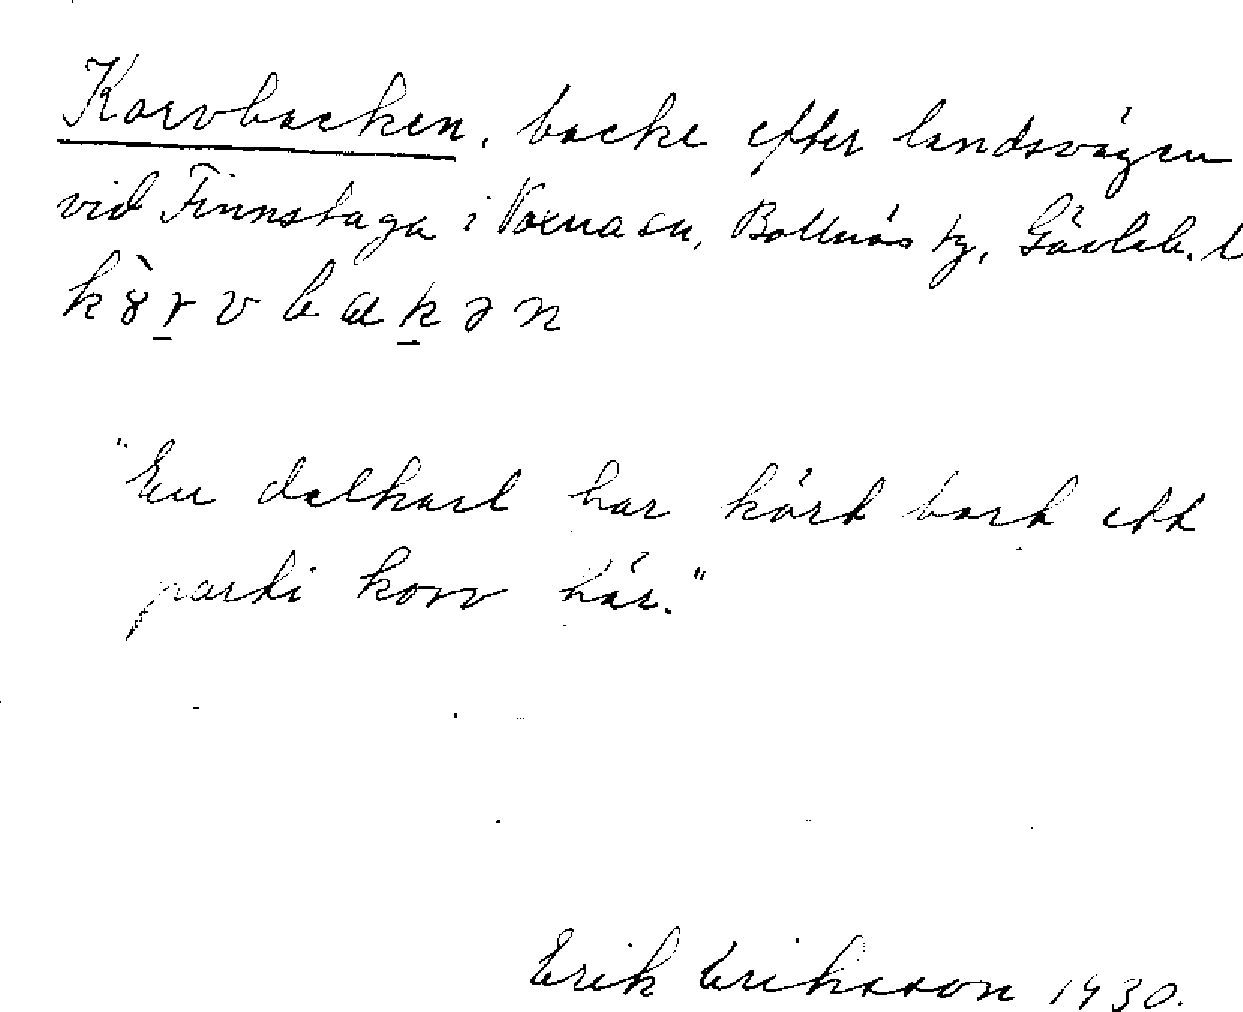 Korvbacken, backe efter landsvägen
vid Finnstuga i Voxnaån, Bollnäs tg, Gävleb. l
kòrvbakən
"En dalkarl har kört bort ett
parti korv här."
Erik Eriksson 1930.